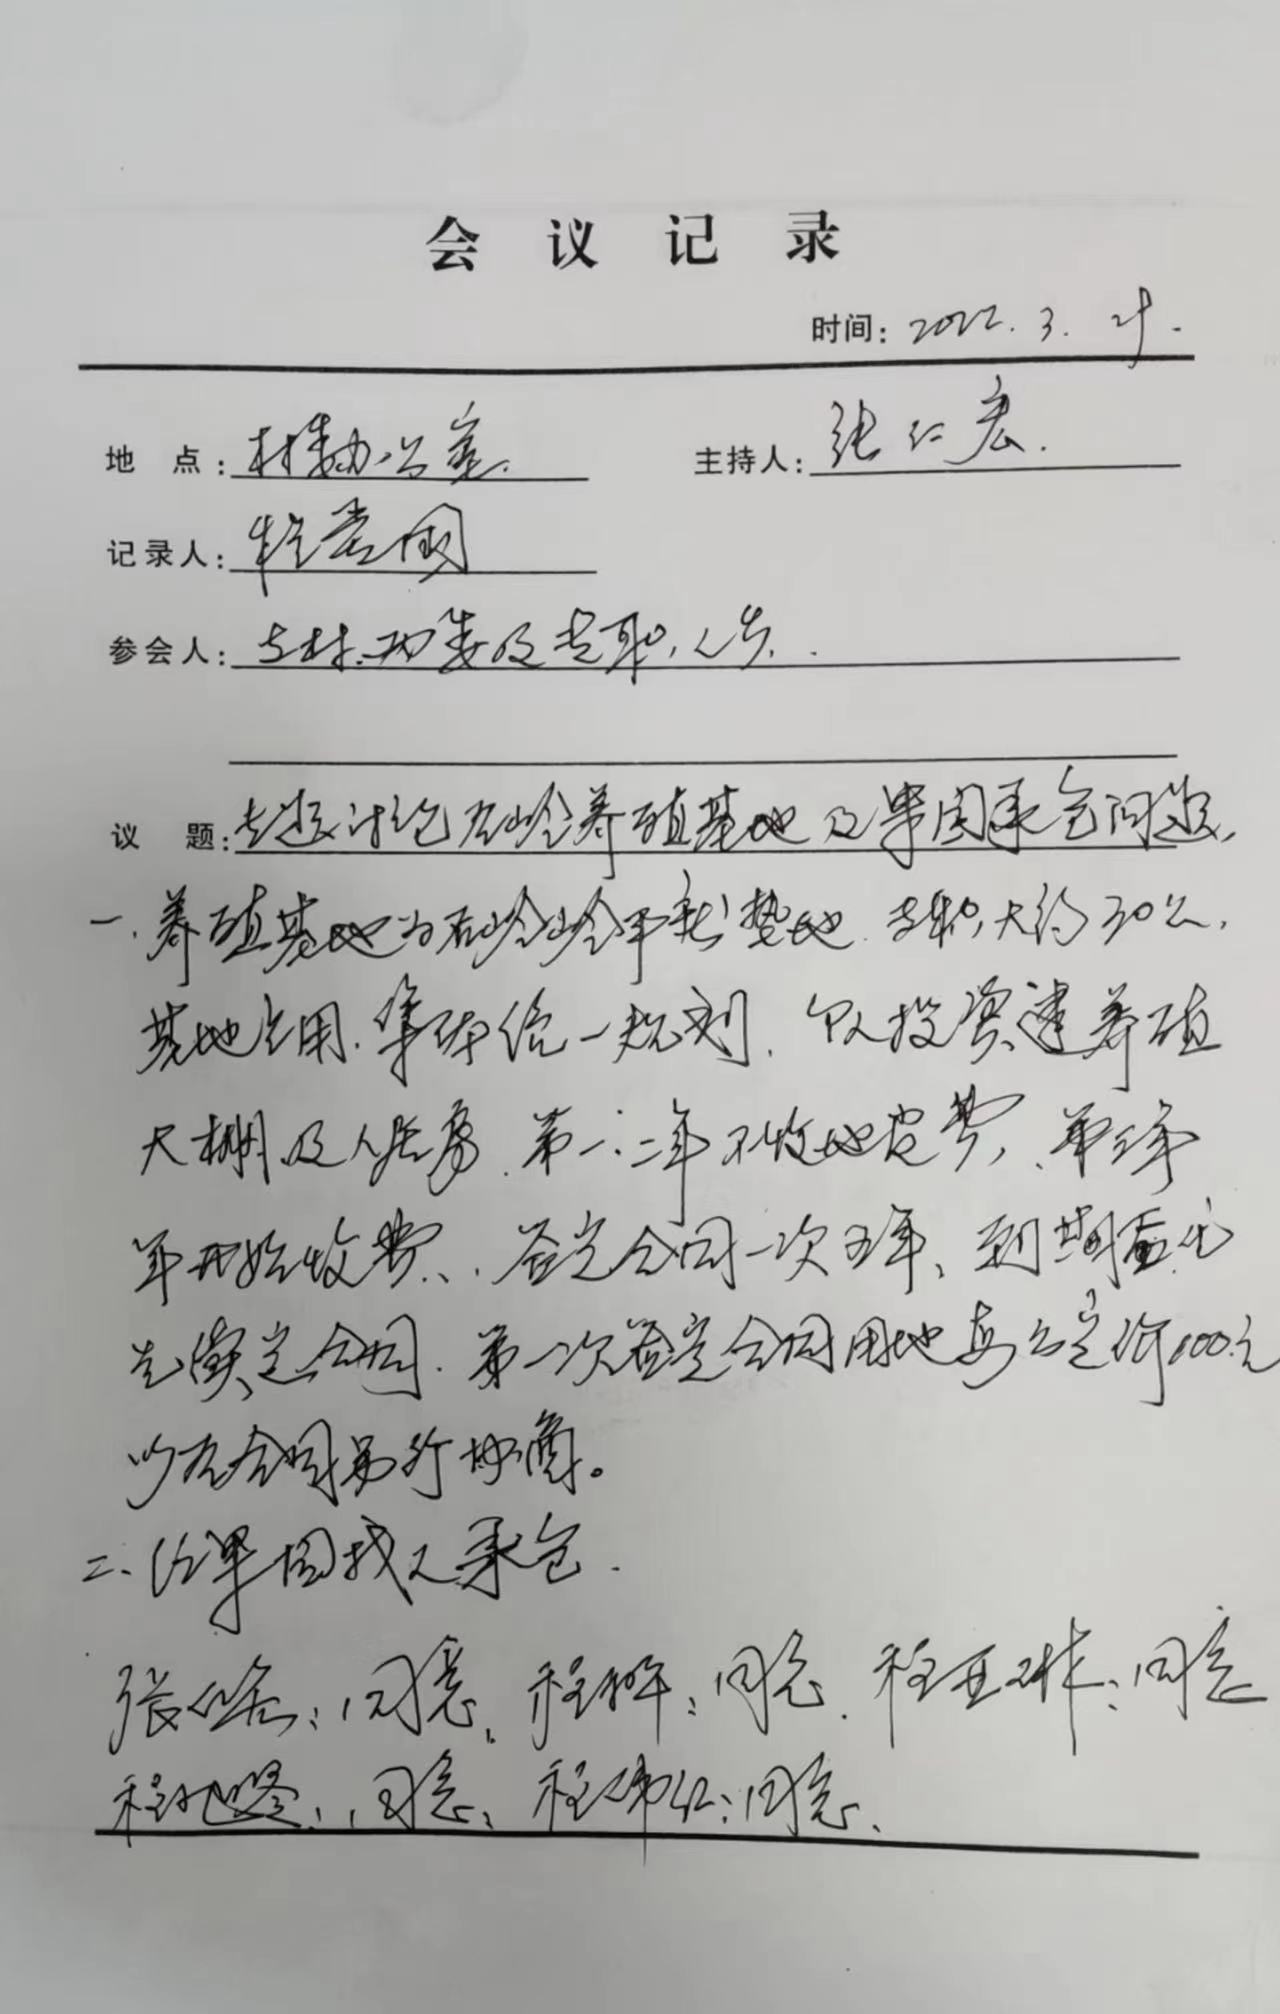 会议记录
时间: 2022.3.
地点: 村委办公室.
主持人: 张仁宏.
记录人: 程 国
参会人: 支村.两委及专职人员.
议题: 专题讨论石岭养殖基地及果园承包问题.
一.养殖基地为石岭岭 垫地.面积大约30亩,
基地占用.集体统一规划.个人投资建养殖
大棚及人居房.第一.二年不收地皮费,.第三年
年开始收费.签定合同一次五年.到期 优
先续定合同.第一次签定合同用地每亩定价100元
以后合同另行协商。
二、 果园找人承包.
张 :同意.程 :同意.程亚 :同意
程 :同意.程 红:同意.